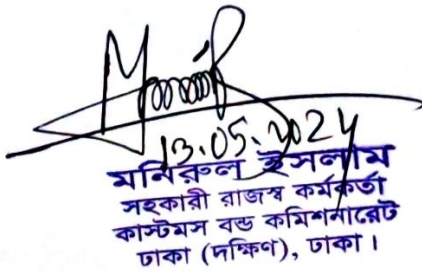 13.05.2024
মনিরুল ইসলাম
সহকারী রাজস্ব কর্মকর্তা
কাস্টমস বন্ড কমিশনারেট
ঢাকা (দক্ষিণ), ঢাকা।